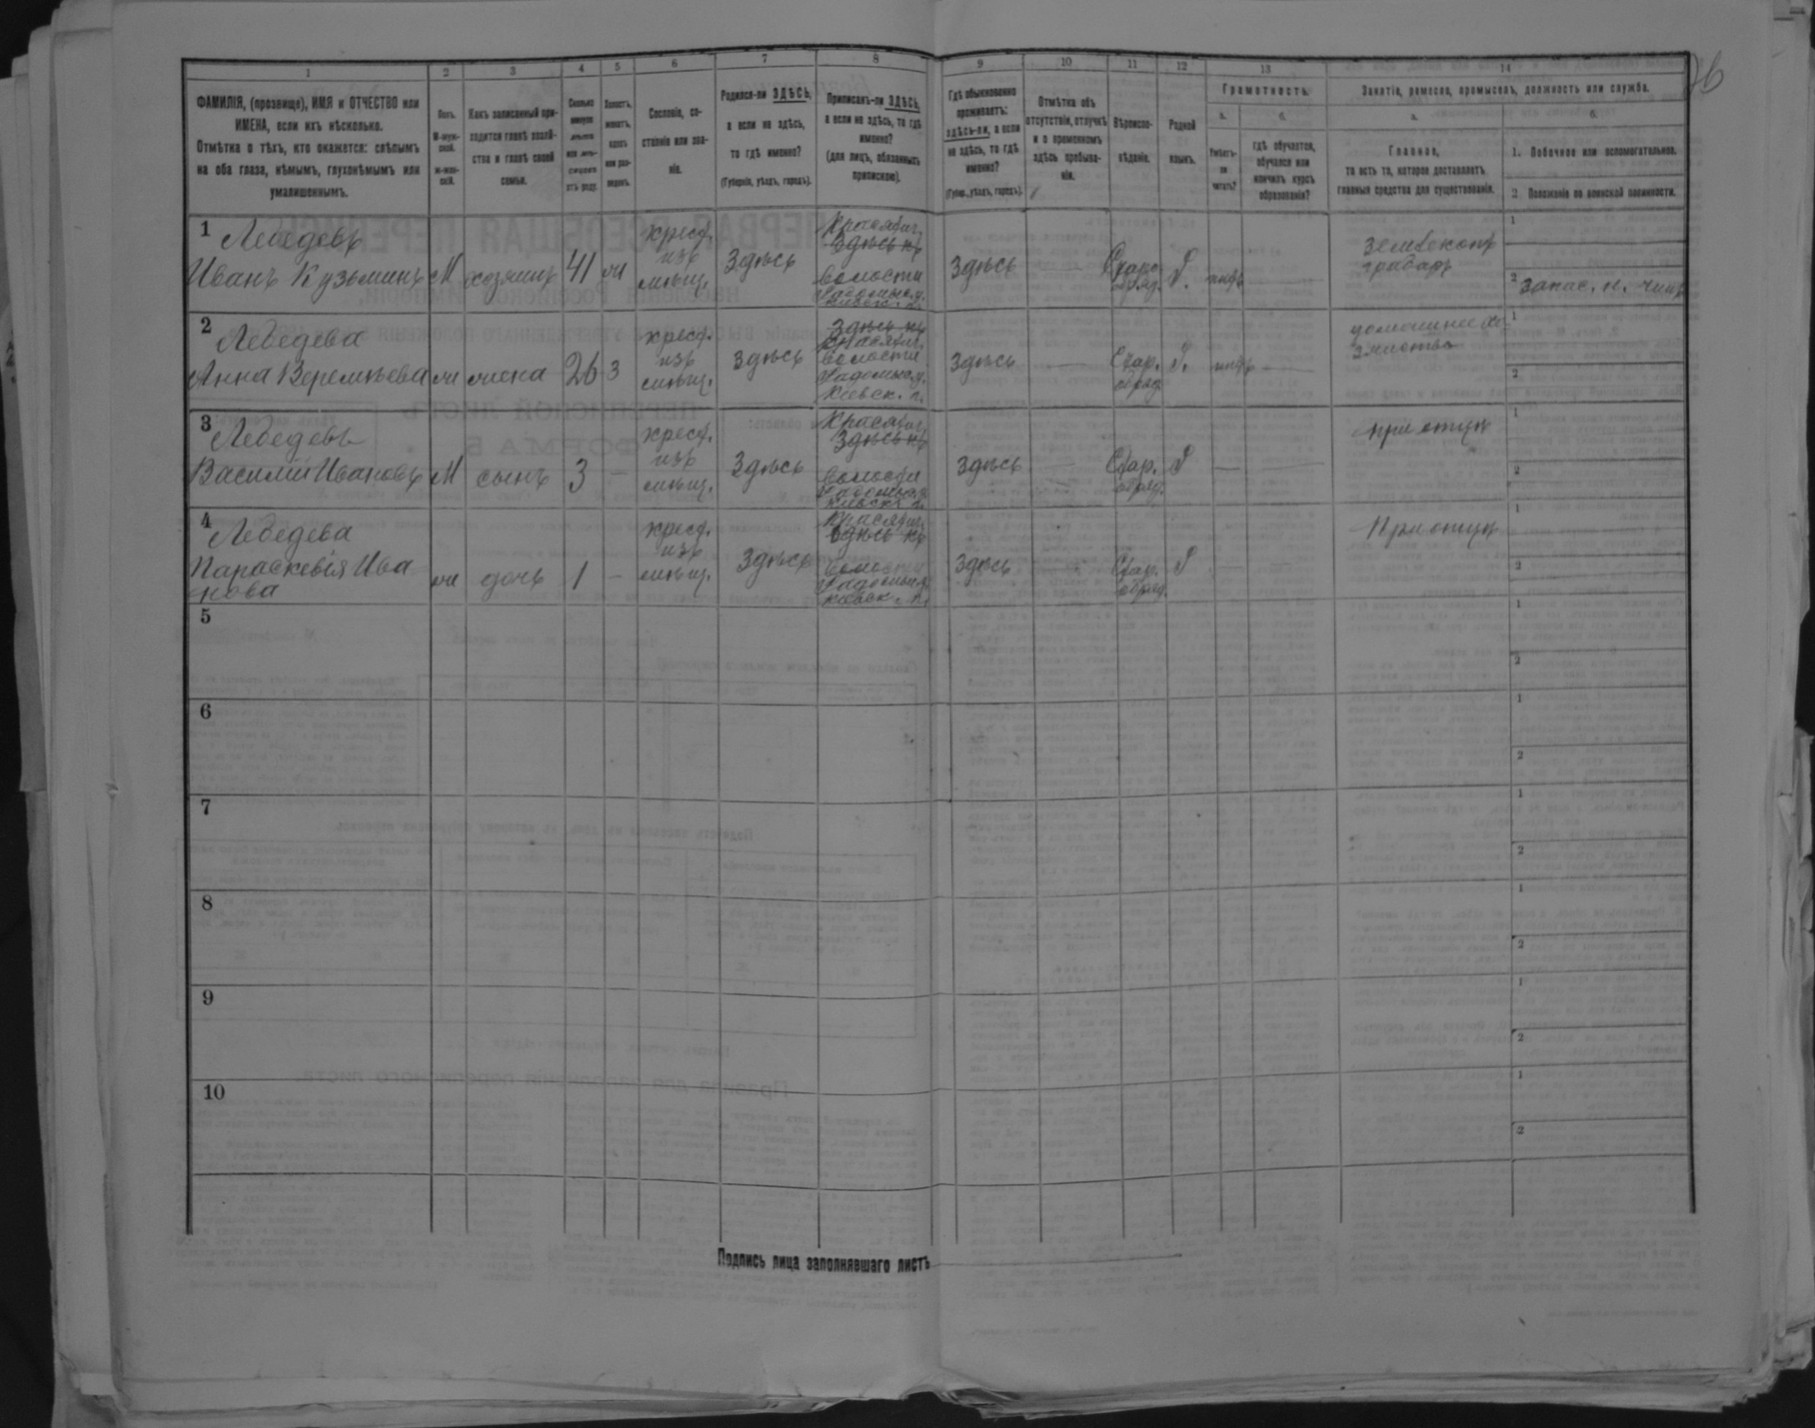 1 2 3 4 5 6 7 8 9 10 11 12 13 14
ФАМИЛІЯ, (прозвище), ИМЯ и ОТЧЕСТВО или
ИМЕНА, если ихъ нѣсколько.
Отмѣтка о тѣхъ, кто окажется: слѣпымъ
на оба глаза, нѣмымъ, глухонѣмымъ или
умалишеннымъ.
Полъ.
М-муж-
ской.
Ж-жен-
скій.
Какъ записанный при-
ходится главѣ хозяй-
ства и главѣ своей
семьи.
Сколько
минуло
лѣтъ
или мѣ-
сяцевъ
отъ роду.
Холостъ,
женатъ,
вдовъ
или раз-
веденъ.
Сословіе, со-
стояніе или зва-
ніе.
Родился-ли ЗДѢСЬ,
а если не здѣсь,
то гдѣ именно?
(Губернія, уѣздъ, городъ).
Приписанъ-ли ЗДѢСЬ,
а если не здѣсь, то гдѣ
именно?
(для лицъ, обязанныхъ
припискою).
Гдѣ обыкновенно
проживаетъ:
здѣсь-ли, а если
не здѣсь, то гдѣ
именно?
(Губер., уѣздъ, городъ).
Отмѣтка объ
отсутствіи, отлучкѣ
и о временномъ
здѣсь пребыва-
ніи.
Вѣроиспо-
вѣданіе.
Родной
языкъ.
Грамотность.
а.
Умѣетъ-
ли
читать?
б.
Гдѣ обучается,
обучался или
кончилъ курсъ
образованія?
Занятіе, ремесло, промыселъ, должность или служба.
а.
Главное,
то есть то, которое доставляетъ
главныя средства для существованія.
б.
1. Побочное или вспомогательное.
2. Положеніе по воинской повинности.
1 Лебедевъ
Иванъ Кузьминъ М хозяинъ 41 ж
крест.
изъ
мѣщ.
Здѣсь
Здѣсь
волости
Радомысл. у.
Кіевск. г.
Здѣсь —
Старо
обряд.
Р. нѣтъ —
землекопъ
грабарь
1
2 запас. н. чинъ
2 Лебедева
Анна Веремѣева ж жена 26 з
крест.
изъ
мѣщ.
здѣсь
Здѣсь
волости
Радомысл. у.
Кіевск. г.
здѣсь —
Стар.
обряд.
Р. нѣтъ —
1
2
3 Лебедевъ
Василій Ивановъ М сынъ 3 —
крест.
изъ
мѣщ.
Здѣсь
Здѣсь
волости
Радомысл. у.
Кіевск. г.
Здѣсь —
Стар.
обряд.
Р — —
при отцѣ
1
2
4 Лебедева
Параскевія Ива
нова ж дочь 1 —
крест.
изъ
мѣщ.
Здѣсь
Здѣсь
волости
Радомысл. у.
Кіевск. г.
Здѣсь —
Стар.
обряд.
Р — —
При отцѣ
1
2
5 1
2
6 1
2
7 1
2
8 1
2
9 1
2
10 1
2
Подпись лица заполнявшаго листъ